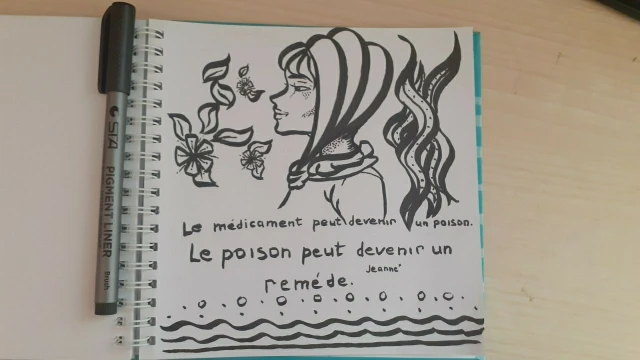 Le médicament peut devenir un poison.
Le poison peut devenir un
Jeanne"
reméde.
STA
PIGMENT LINER
Brush